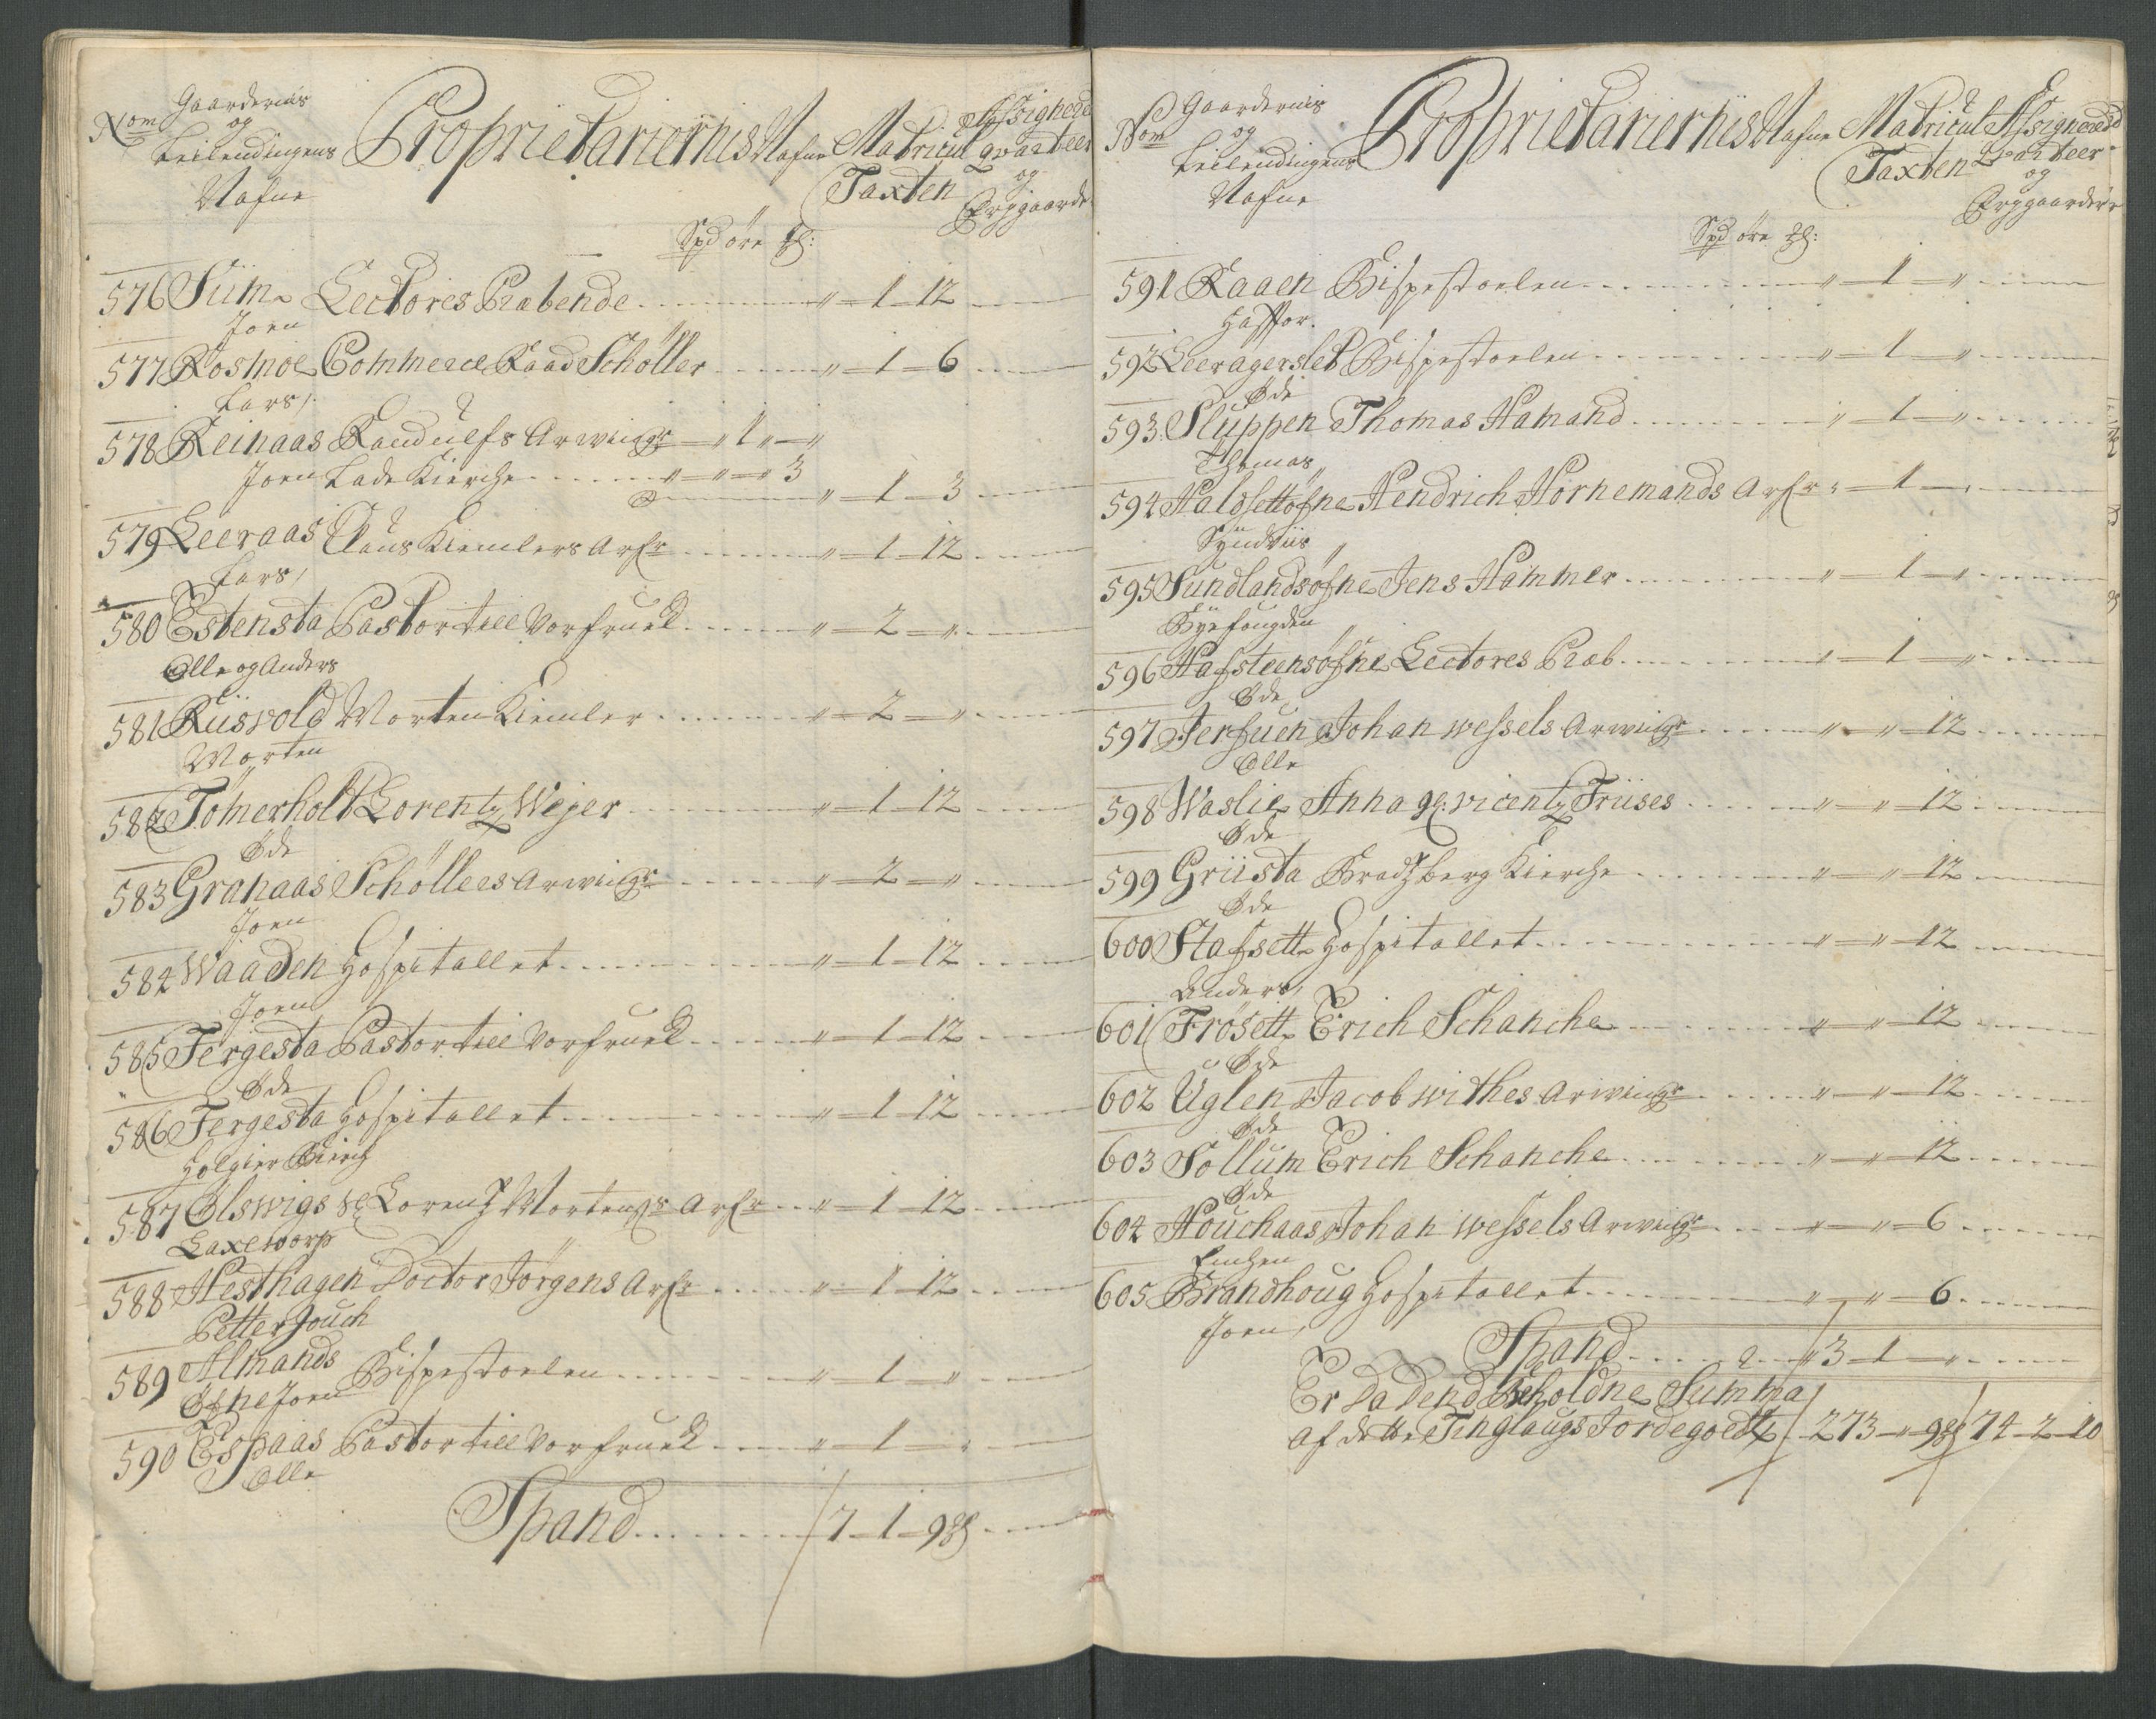 Nom Gaardernis og Leilendingens Nafne Proprietariernis Nafne Matricul Taxten Assignered qvarteer og Brÿgaarde
Spd øre
576 Süm Lectores Præbende „ 1 12
Joen
577 Rosmoe Commerce Raad Schøller „ 1 6
Lars
578 Reinaas Randulfs Arwinger „ 1 „
Joen Lade Kierche „ „ 3
„ 1 3
579 Leeraas Claus Kiemlers Arfr „ 1 12
Lars
580 Estensta Pastor till Vorfrue „ 2 „
Olle og Anders
581 Rüsvold Morten Kiemler „ 2 „
Morten
582 Tømerholt Lorentz Wejer „ 1 12
Øde
583 Granaas Schøllers Arwinger „ 2 „
Joen
584 Waaden Hospitallet „ 1 12
Joen
585 Fergesta Pastor till Vorfrue „ 1 12
Øde
586 Fergesta Hospitallet „ 1 12
587 Olswigs Sl Lorentz Mortensens Arfr „ 1 12
Laxeworp
588 Hesthagen Doctor Jørgens Arfr „ 1 12
Petter Jouch
589 Almands Bispestoelen „ 1 „
Øfne Joen
590 Espaas Pastor till Vorfrue „ 1 „
Olle
Spand 17 1 9
Nom Gaardernis og Leilendingens Nafne Proprietariernis Nafne Matricul Taxten Assignered Qvarteer og Brÿgaarder
Spd øre
591 Raaen Bispestoelen „ 1 „
Haffor
592 Leeragerslet Bispestoelen „ 1 „
Øde
593 Sluppen Thomas Hamand „ 1 „
Thomas
594 Haldsettøfne Hendrich Hornemands Arfr „ 1 „
595 Sundlandsøfne Jens Hammer „ 1 „
Bÿefougden
596 Hafsteensøfne Lectores Præb „ 1 „
Øde
597 Ferfuen Johan Wessels Arwinger „ „ 12
Olle
598 Waslie Anna Sl: Vicentz Friises „ „ 12
Øde
599 Griista Bradtzberg Kierche „ „ 12
Øde
600 Stafsett Hospitallet „ „ 12
Anders
601 Frøsett Erich Schanche „ „ 12
Øde
602 Uglen Jacob Withes Arwinger „ „ 12
Øde
603 Sollum Erich Schanche „ „ 12
Øde
604 Houchaas Johan Wessels Arwinger „ „ 6
605 Brandhoug Hospitallet „ „ 6
Joen
Spand 3 1 „
Er Da Dend Beholdne Summa
af dette Tinglaugs Jordegods 273 „ 9 74 2 10